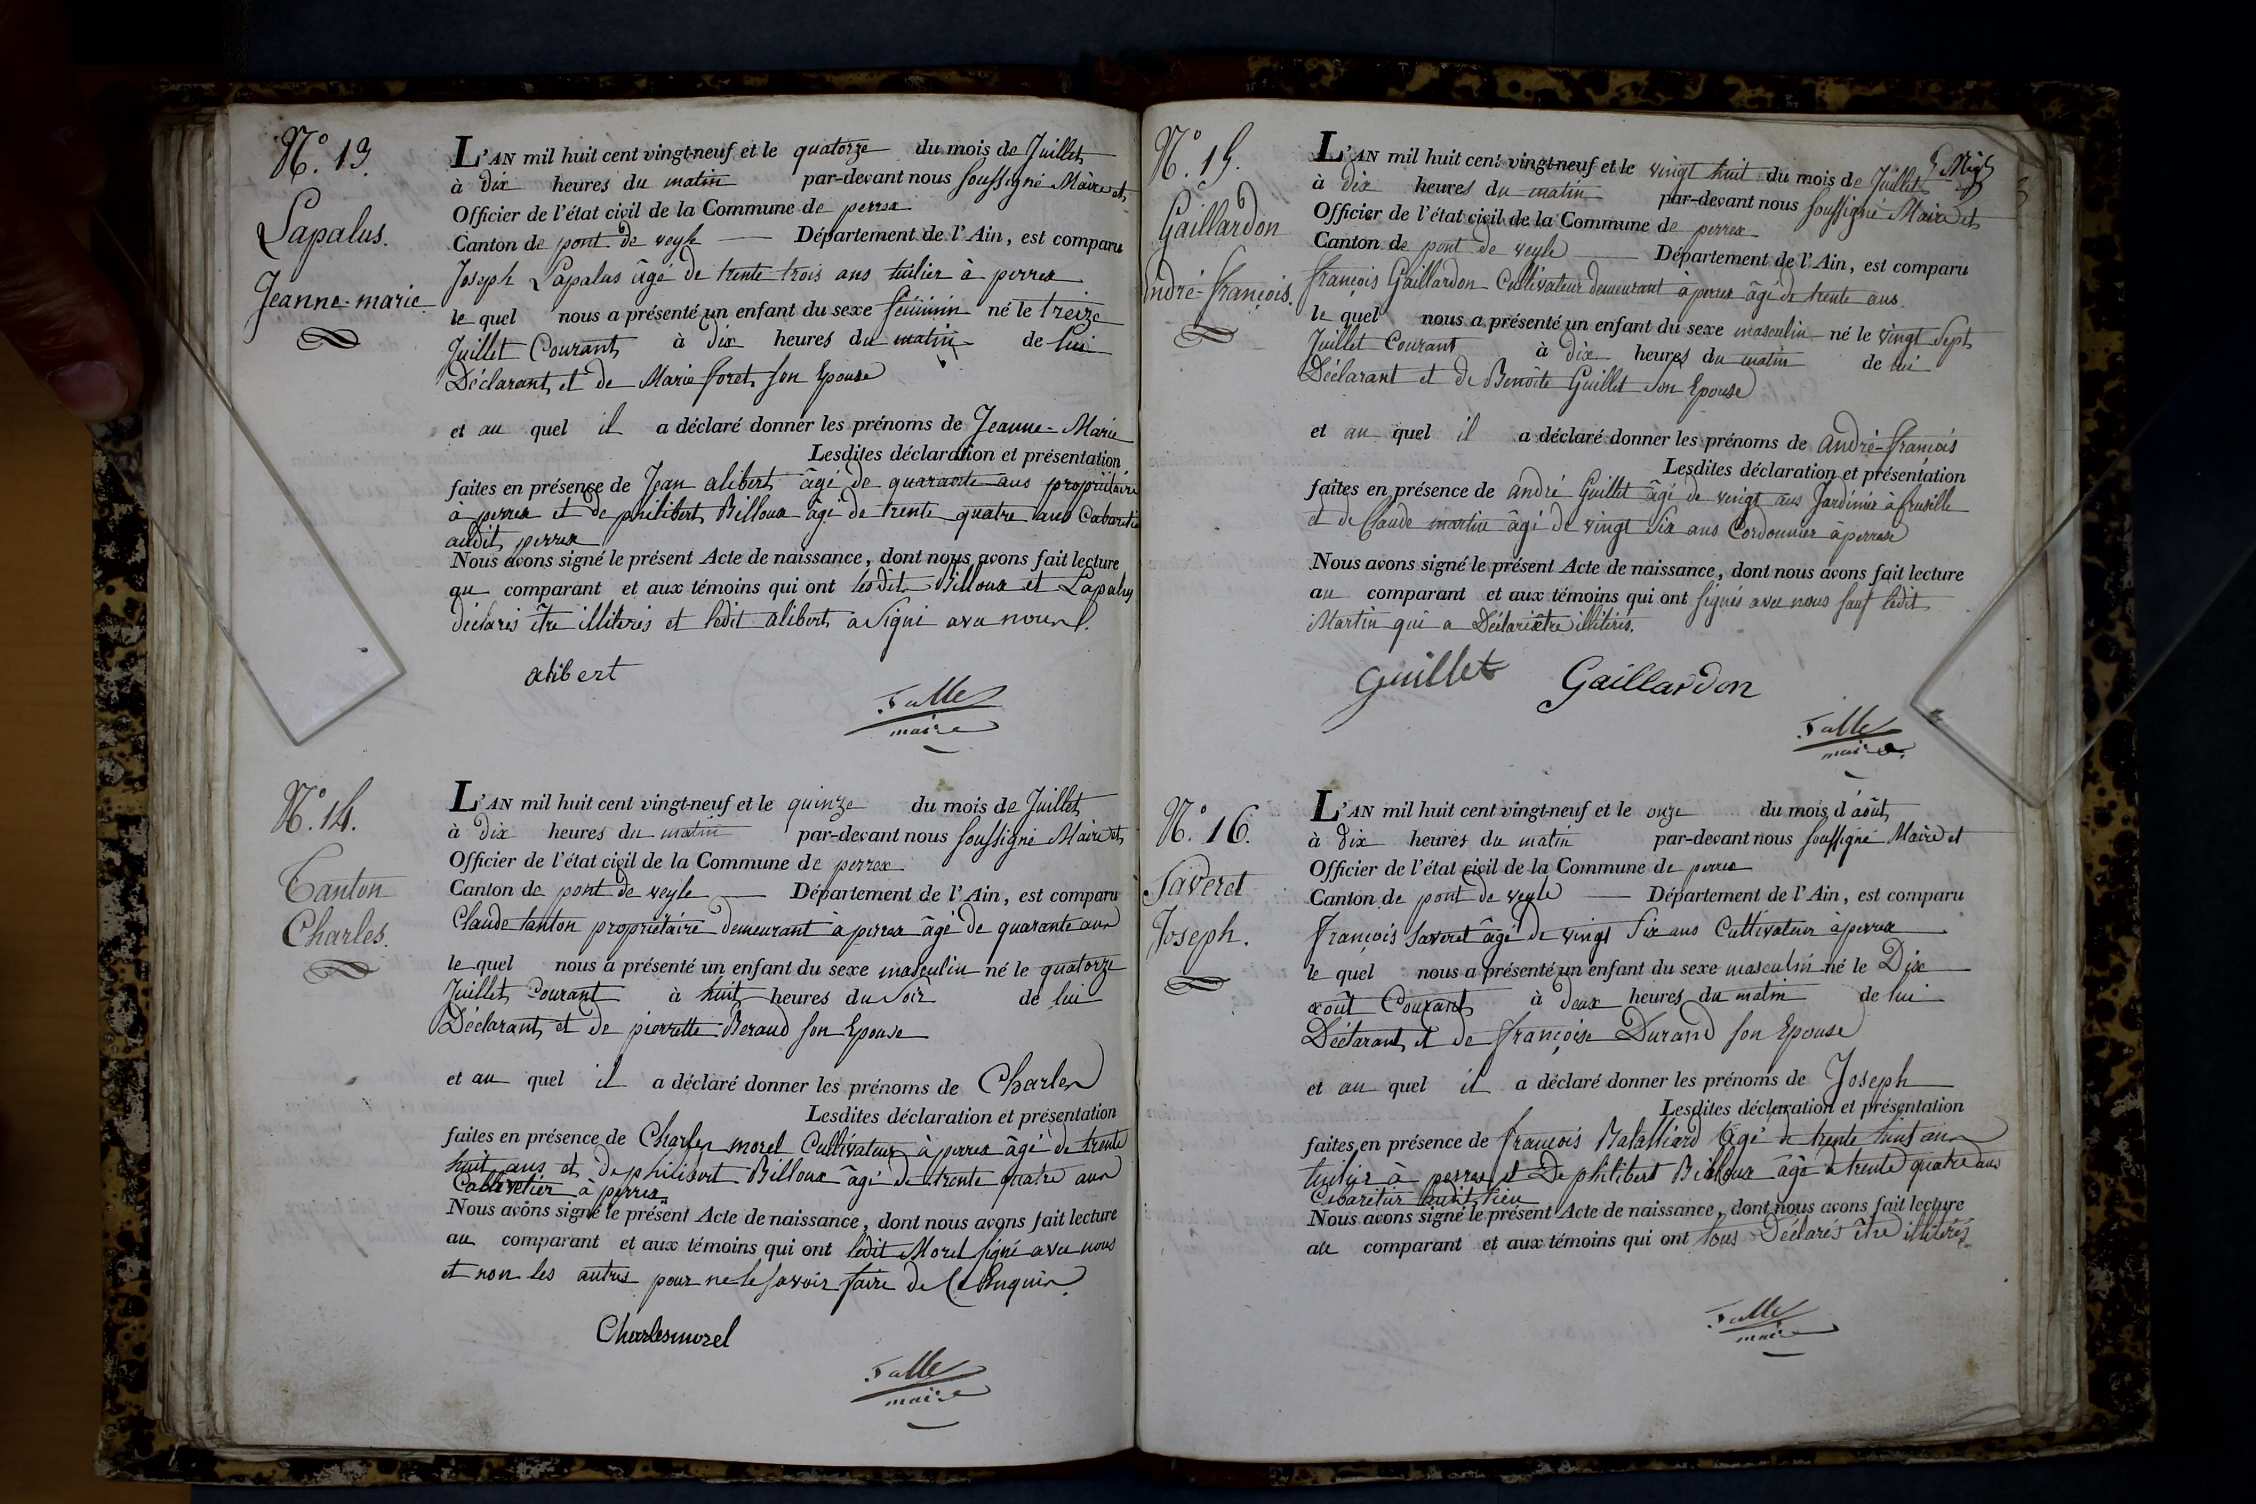 N.º 13.
Lapalus.
Jeanne-marie
L'AN mil huit cent vingt-neuf et le quatorze du mois de Juillet
à dix heures du matin par-devant nous soussigné Maire et
Officier de l'état civil de la Commune de perrex
Canton de pont de veyle Département de l'Ain, est comparu
Joseph Lapalus âgé de trente trois ans tuilier à perrex
le quel nous a présenté un enfant du sexe féminin né le treize
Juillet Courant à dix heures du matin de lui
Déclarant et de Marie foret son Epouse
et au quel il a déclaré donner les prénoms de Jeanne-Marie
Lesdites déclaration et présentation
faites en présence de Jean alibert âgé de quarante ans propriétaire
à perrex et de philibert Billoux âgé de trente quatre ans Cabaretier
audit perrex
Nous avons signé le présent Acte de naissance, dont nous avons fait lecture
au comparant et aux témoins qui ont lesdits Billoux et Lapalus
déclarés être illiterés et ledit alibert a signé avec nous.
alibert
falle
maire
N.º 14.
Tanton
Charles.
L'AN mil huit cent vingt-neuf et le quinze du mois de Juillet
à dix heures du matin par-devant nous soussigné Maire et
Officier de l'état civil de la Commune de perrex
Canton de pont de veyle Département de l'Ain, est comparu
Claude tanton propriétaire demeurant à perrex âgé de quarante ans
le quel nous a présenté un enfant du sexe masculin né le quatorze
Juillet Courant à huit heures du soir de lui
Déclarant et de pierrette Beraud son Epouse
et au quel il a déclaré donner les prénoms de Charles
Lesdites déclaration et présentation
faites en présence de Charles morel Cultivateur à perrex âgé de trente
huit ans et de philibert Billoux âgé de trente quatre ans
Cabaretier à perrex
Nous avons signé le présent Acte de naissance, dont nous avons fait lecture
au comparant et aux témoins qui ont ledit Morel signé avec nous
et non les autres pour ne le savoir faire de ce Enquis.
Charlesmorel
falle
maire
N.º 15.
Gaillardon
André-françois.
L'AN mil huit cent vingt-neuf et le vingt huit du mois de Juillet
à dix heures du matin par-devant nous soussigné Maire et
Officier de l'état civil de la Commune de perrex
Canton de pont de veyle Département de l'Ain, est comparu
françois Gaillardon Cultivateur demeurant à perrex âgé de trente ans
le quel nous a présenté un enfant du sexe masculin né le vingt sept
Juillet Courant à dix heures du matin de lui
Déclarant et de Benoîte Guillet son Epouse
et au quel il a déclaré donner les prénoms de andré-françois
Lesdites déclaration et présentation
faites en présence de andré Guillet âgé de vingt ans Jardinier à
et de Claude martin âgé de vingt six ans Cordonnier à perrex
Nous avons signé le présent Acte de naissance, dont nous avons fait lecture
au comparant et aux témoins qui ont signés avec nous sauf ledit
Martin qui a Déclaré être illiterés.
Guillet Gaillardon
falle
maire.
N.º 16.
Saveret
Joseph.
L'AN mil huit cent vingt-neuf et le onze du mois d'août
à dix heures du matin par-devant nous soussigné Maire et
Officier de l'état civil de la Commune de perrex
Canton de pont de veyle Département de l'Ain, est comparu
françois Saveret âgé de vingt six ans Cultivateur à perrex
le quel nous a présenté un enfant du sexe masculin né le Dix
août Courant à deux heures du matin de lui
Déclarant et de françoise Durand son Epouse
et au quel il a déclaré donner les prénoms de Joseph
Lesdites déclaration et présentation
faites en présence de françois Batalliard âgé de trente huit ans
tuilier à perrex et De philibert Billoux âgé de trente quatre ans
Cabaretier audit lieu
Nous avons signé le présent Acte de naissance, dont nous avons fait lecture
au comparant et aux témoins qui ont tous Déclarés être illiterés
falle
maire